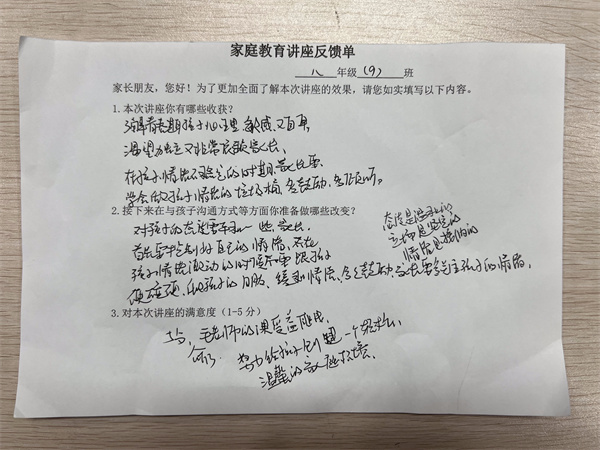 家庭教育讲座反馈单
八 年级 (9) 班
家长朋友，您好！为了更加全面了解本次讲座的效果，请您如实填写以下内容。
1.本次讲座你有哪些收获？
孩子心里 敏感 又
渴望独立又非常依赖家长，
在孩子情绪不稳定的时期，家长要
学会做孩子情绪的垃圾桶，多鼓励，多倾听。
2.接下来在与孩子沟通方式等方面你准备做哪些改变？
态度是温和的
立场是坚定的
情绪是
对孩子的态度要 一些，家长
首先要控制好自己的情绪，不在
孩子情绪激动的时候 要跟孩子
硬碰硬， 孩子的 ，缓和情绪，多鼓励， 孩子的情绪，
3.对本次讲座的满意度（1-5 分）
5分， 老师的课受益匪浅，
今后 努力给孩子创造一个
温馨的家庭环境。